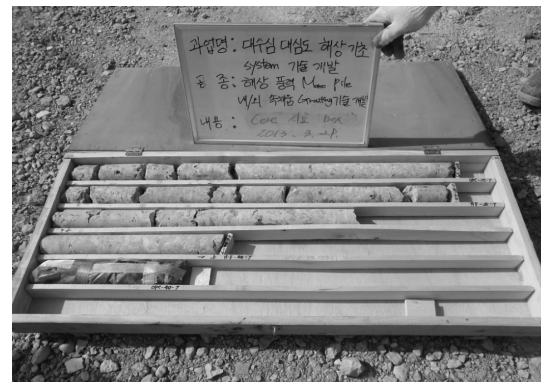 과업명: 대수심 대심도 해상 기초
system 기술 개발
공 종: 해상 풍력 Mono Pile
내/외 속채움 Grouting 기술 개발
내용: Core 시료 Box
2013. 3.